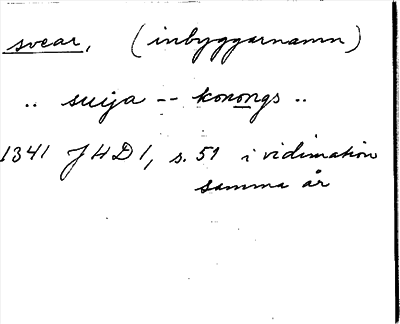 svear, (inbyggarnamn)
.. suija -- konongs ..
1341 JHD 1, s. 51 i vidimation
samma år